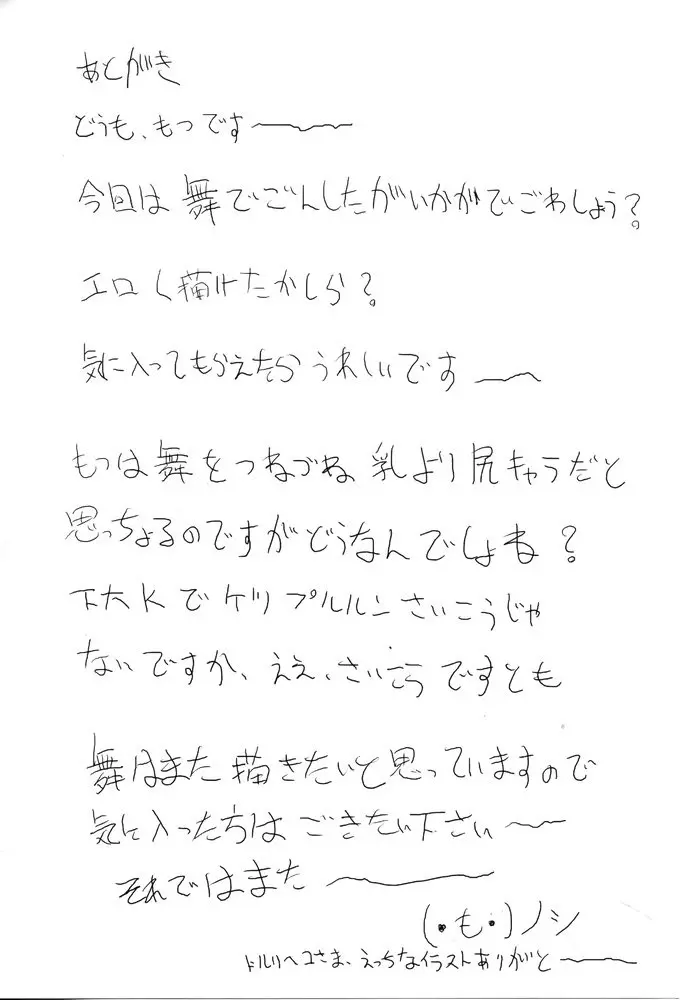 あとがき
どうも、もつです〜
今回は舞でごんしたがいかがでごわしょう?
エロく描けたかしら?
気に入ってもらえたらうれしいです〜
もつは舞をつねづね乳より尻キャラだと
思っちょるのですがどうなんでしょね?
下大Kでケツプルルンさいこうじゃ
ないですか、ええ、さいこうですとも
舞はまた描きたいと思っていますので
気に入った方はごきたい下さい〜
それではまた〜
(・も・)ノシ
えっちなイラストありがと〜